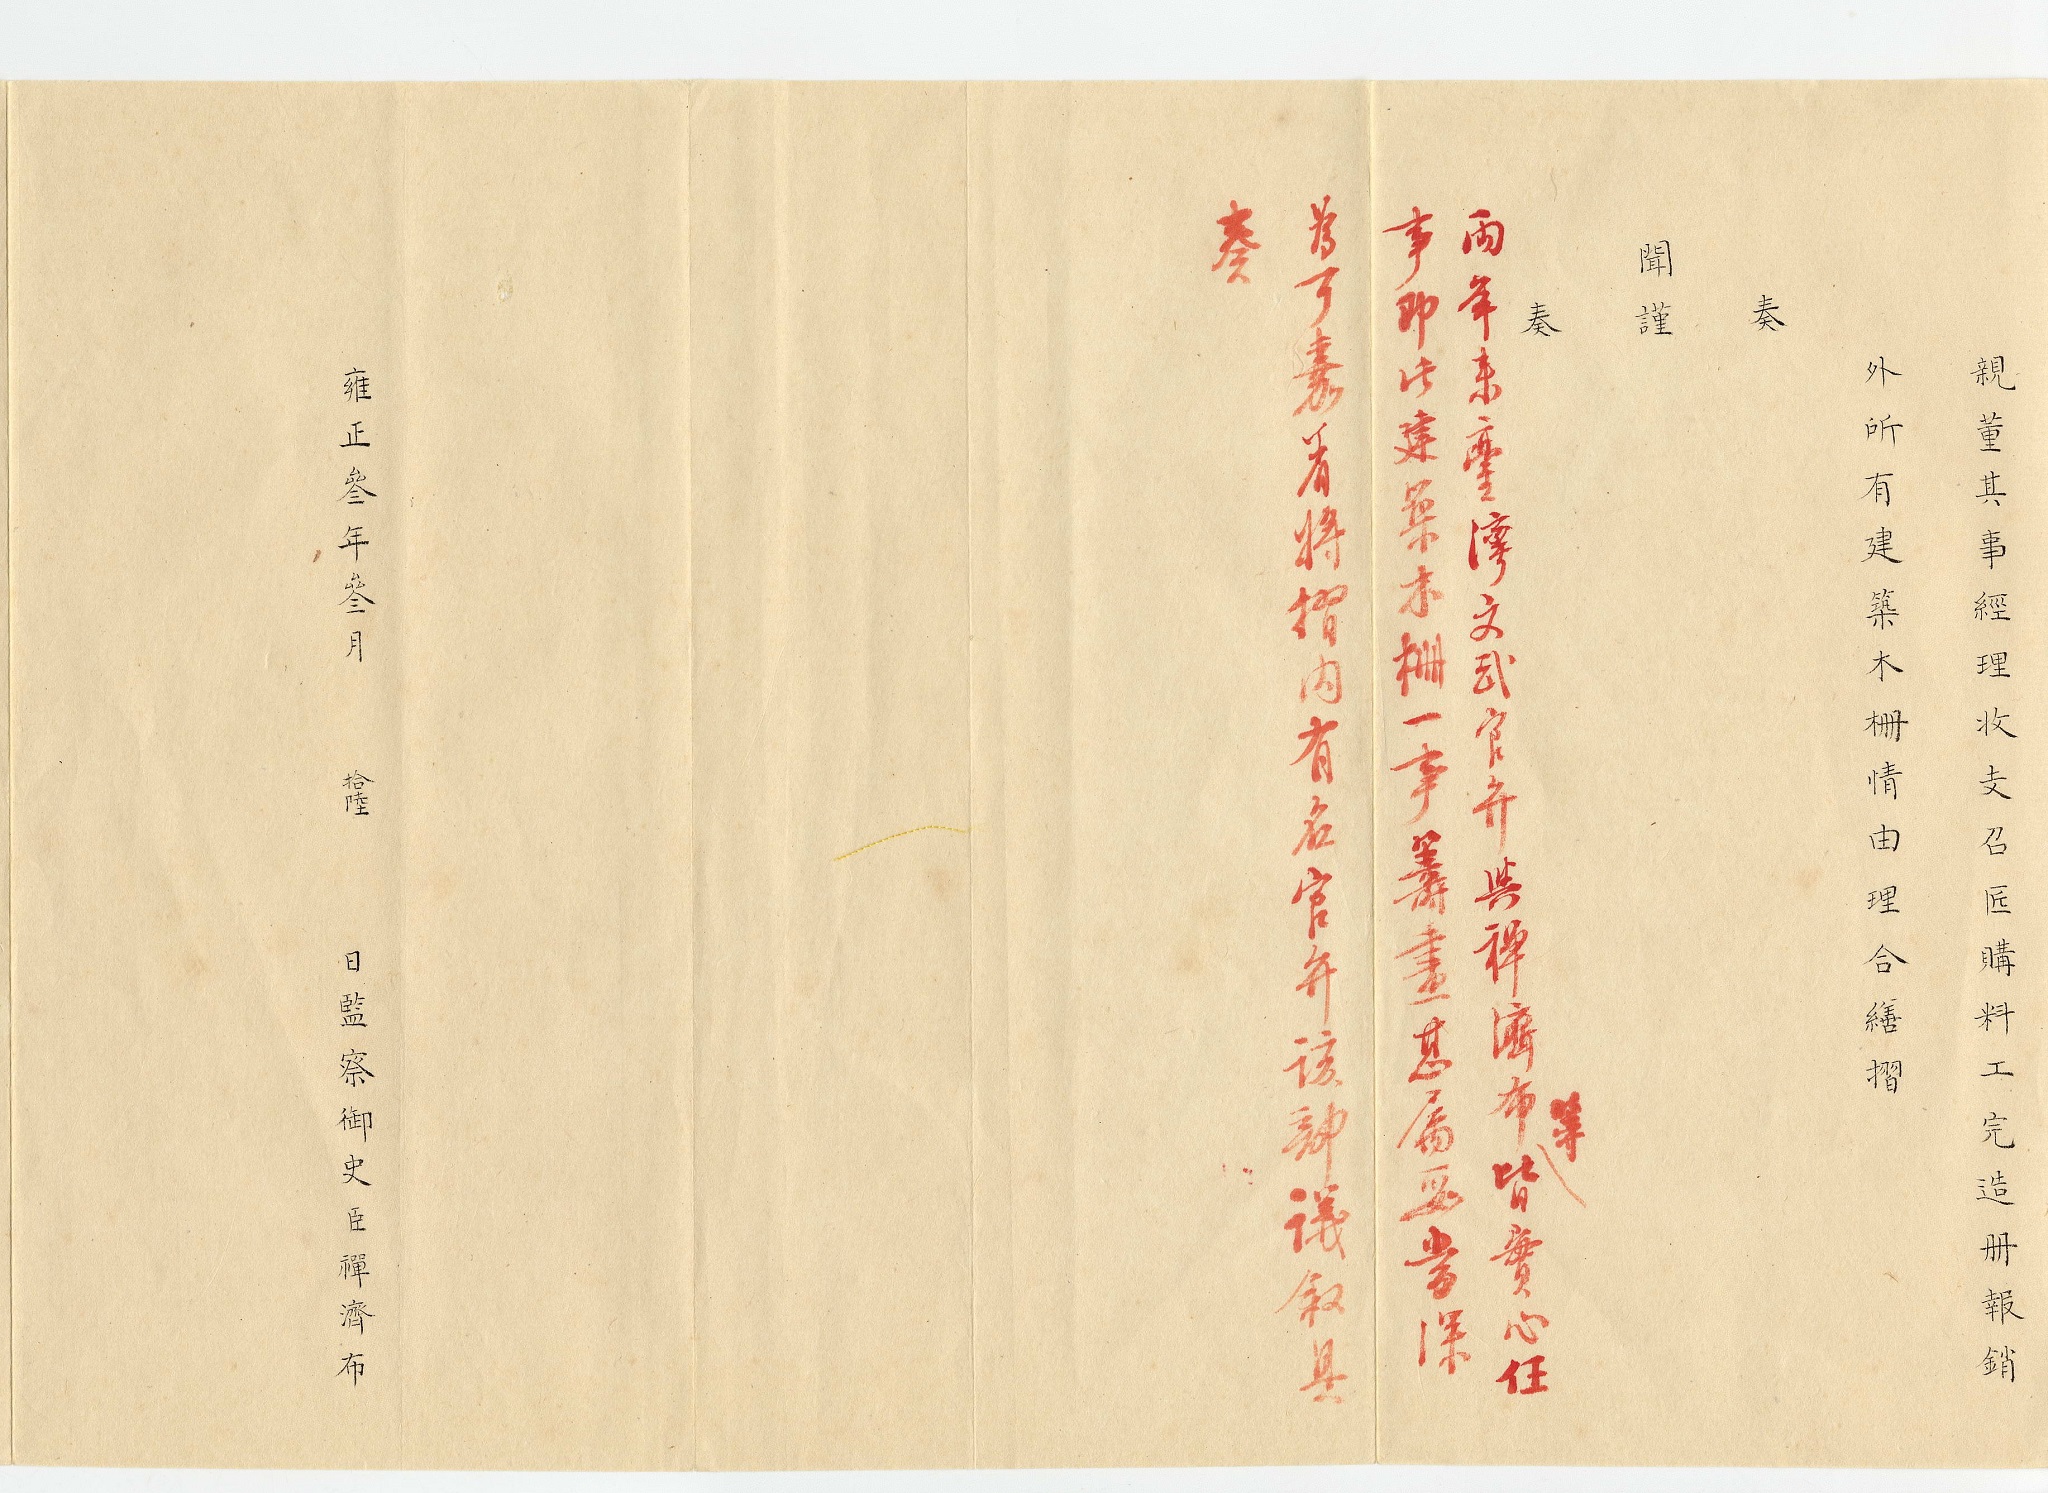 親董其事經理收支召匠購料工完造册報銷
外所有建築木柵情由理合繕摺
奏
聞謹
奏
兩年來臺灣文武官弁與禪濟布等皆實心任
事即此建築木柵一事籌畫甚屬妥當深
為可嘉着將摺内有名官弁該部議叙具
奏
雍正叁年叁月 拾陸 日監察御史臣禪濟布